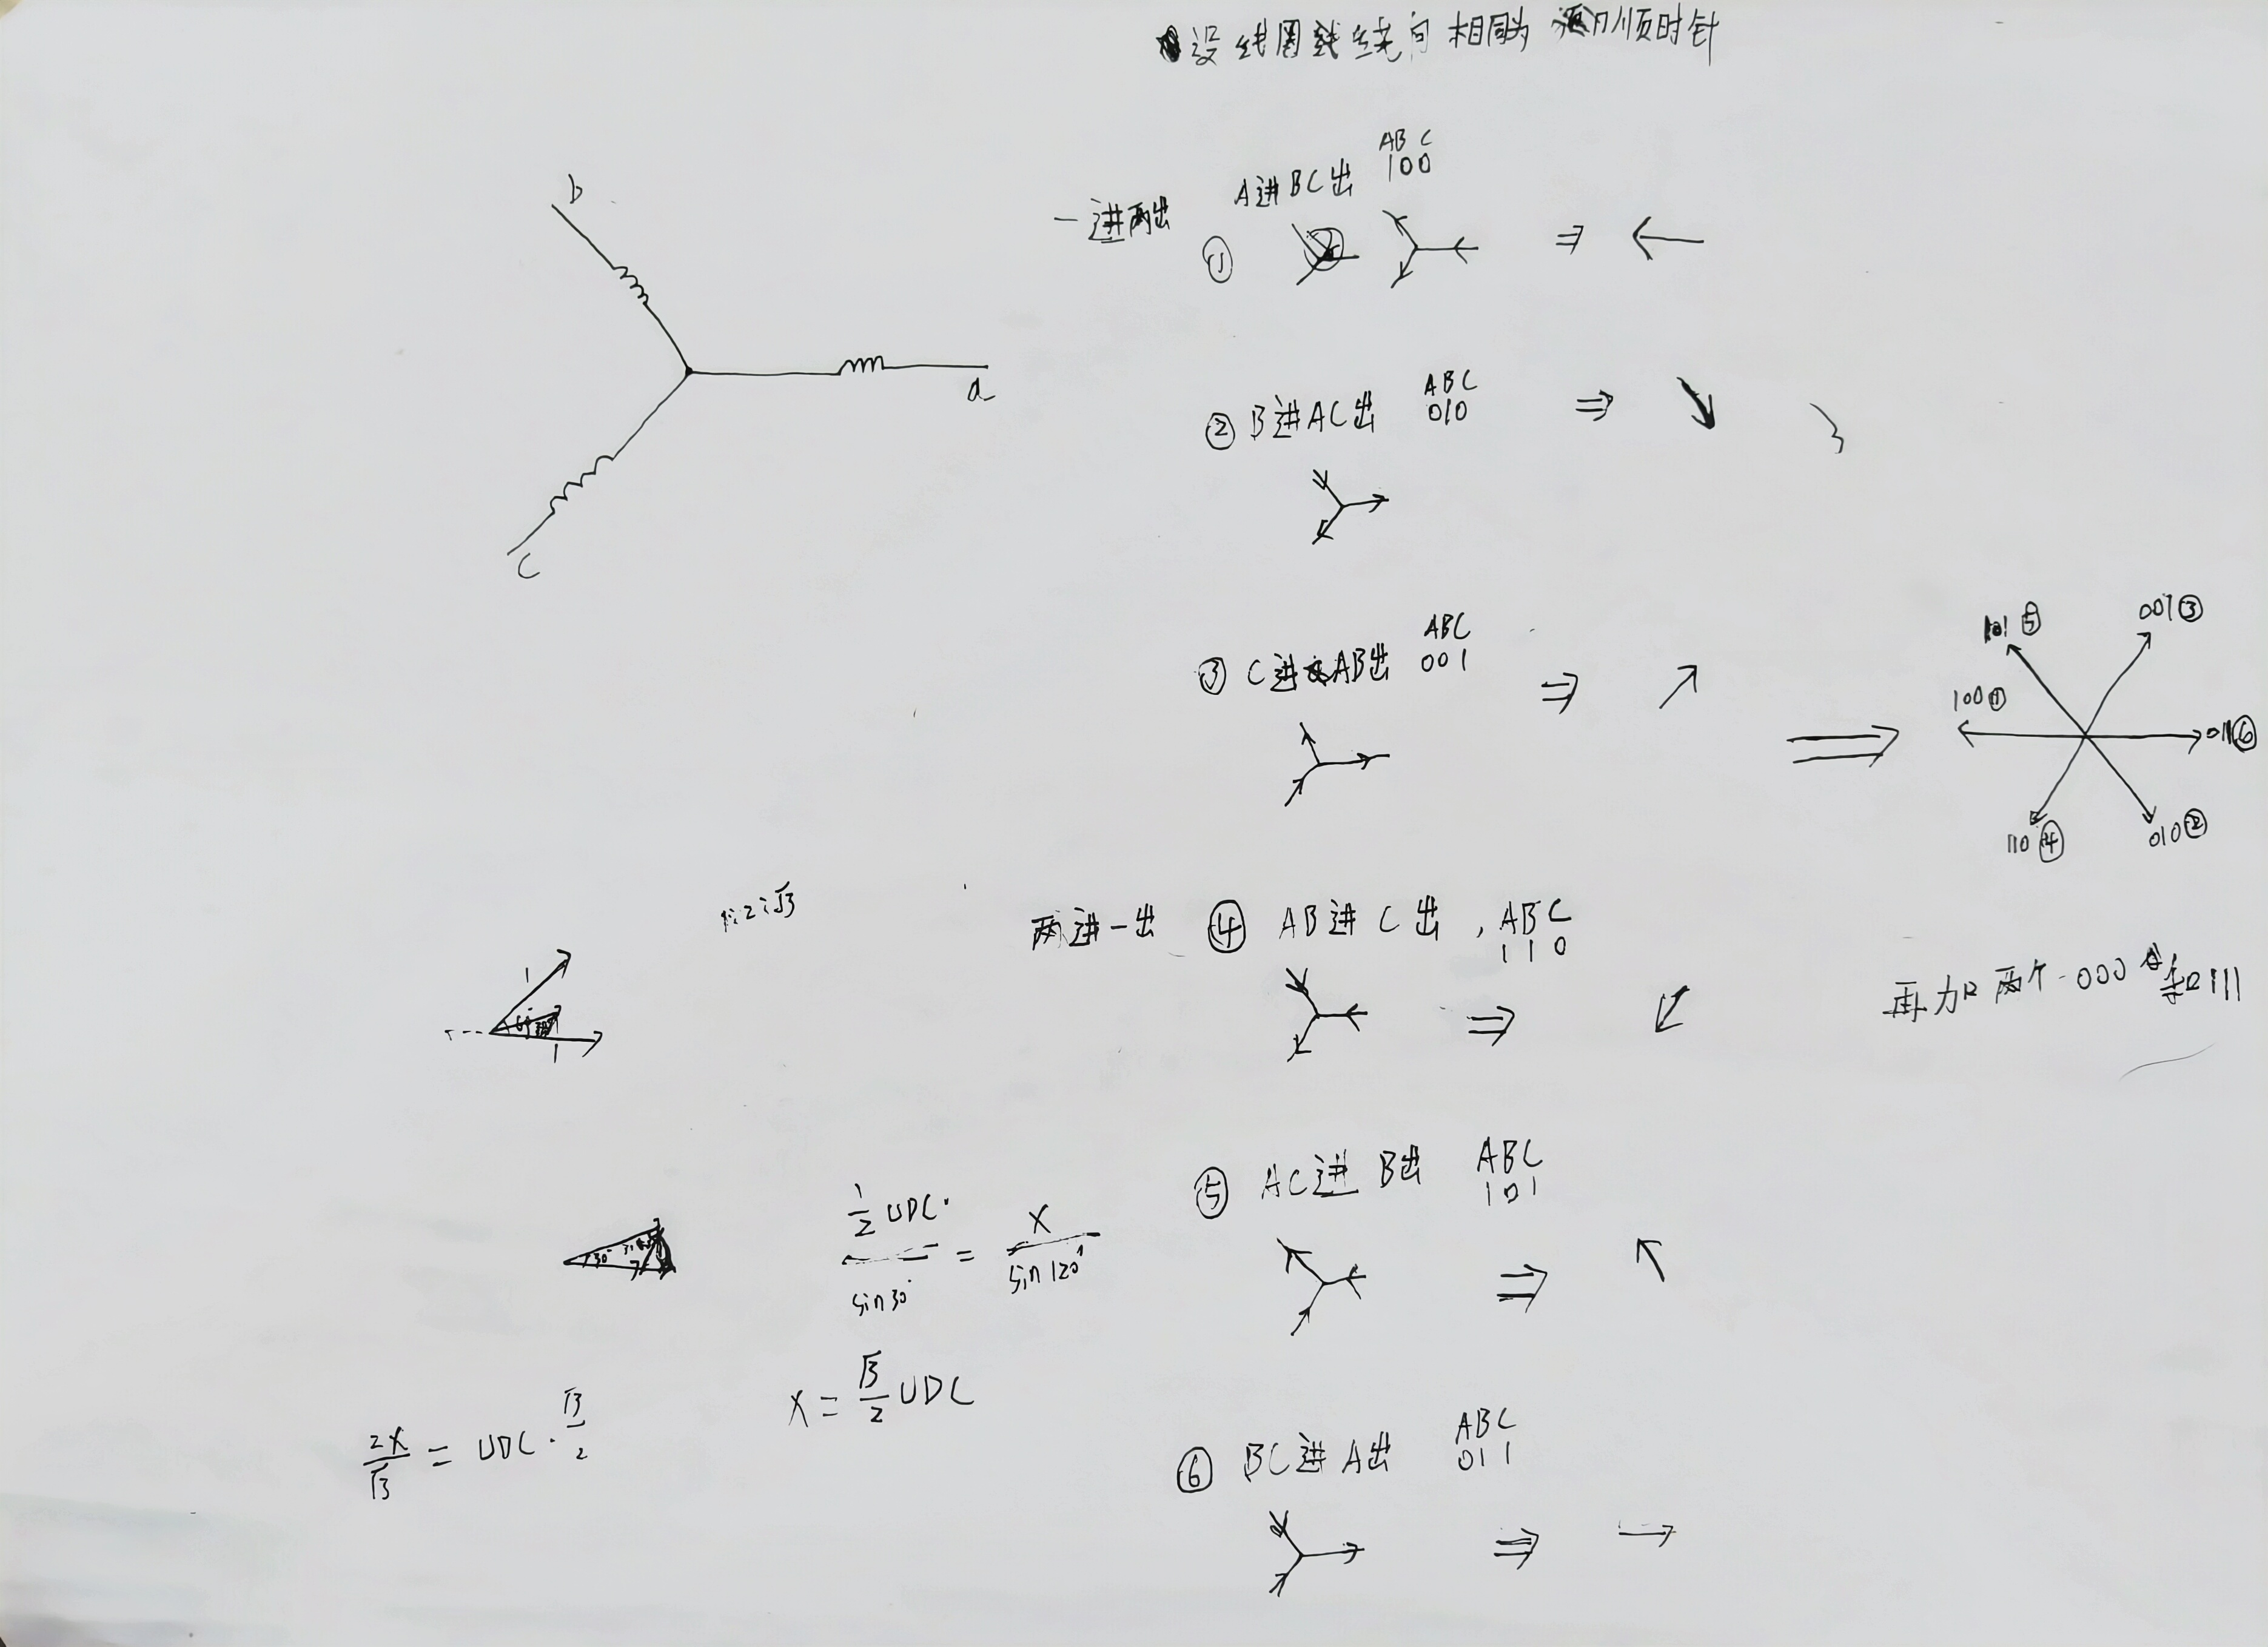 设线圈绕向相同为顺时针
b
a
C
一进两出
A进BC出
ABC
100
①
⇒ ←
② B进AC出
ABC
010
⇒ ↘
③ C进AB出
ABC
001
⇒ ↗
101⑤
001③
100①
011⑥
110④
010②
1:2:√3
1
1
两进一出
④ AB进C出,
ABC
110
⇒ ↙
再加两个000和111
⑤ AC进B出
ABC
101
⇒ ↖
30°
1/2 UDC / sin30° = X / sin120°
X = √3/2 UDC
2X/√3 = UDC · √3/2
⑥ BC进A出
ABC
011
⇒ →